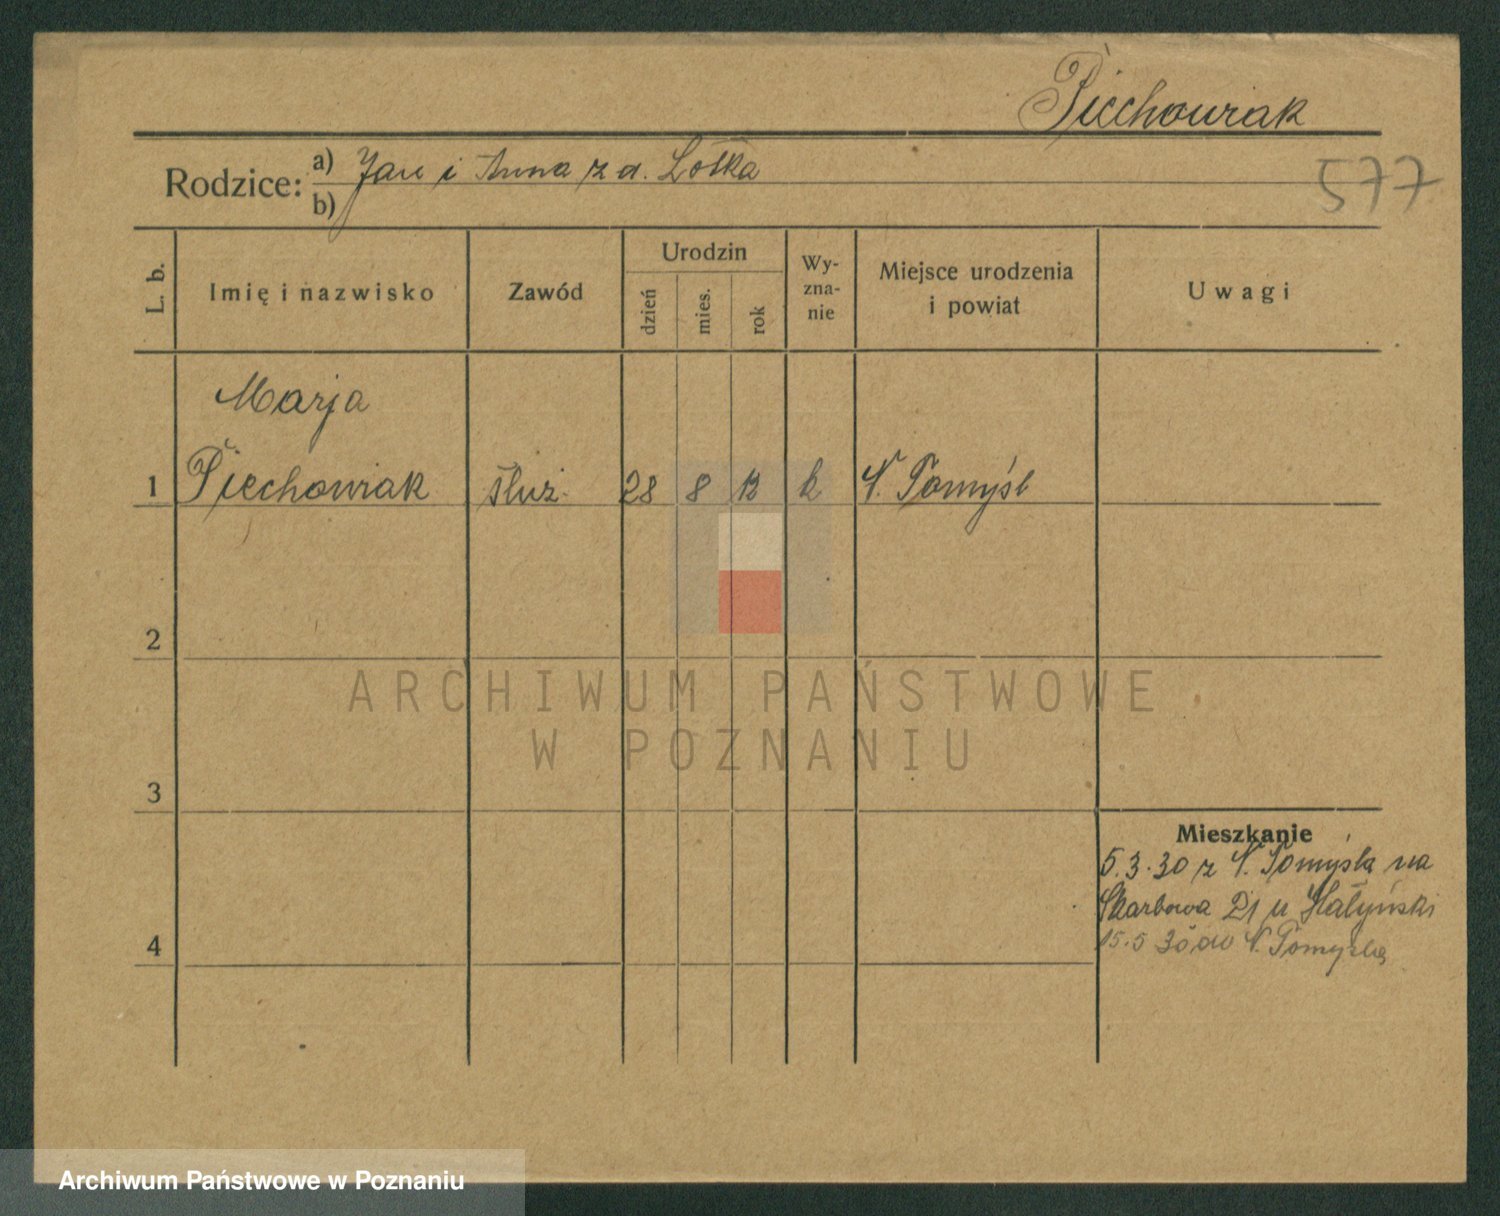 Piechowiak
Rodzice: a) Jan i Anna z d. Lotka
b)
577
L. b.
Imię i nazwisko
Zawód
Urodzin
dzień
mies.
rok
Wy-
zna-
nie
Miejsce urodzenia
i powiat
Uwagi
Marja
1 Piechowiak służ. 28 8 12 k N. Tomyśl
2
3
4
Mieszkanie
5.3.30 z N. Tomyśla na
Skarbowa 21 u
15.5 30 do N. Tomyśla
ARCHIWUM PAŃSTWOWE
W POZNANIU
Archiwum Państwowe w Poznaniu